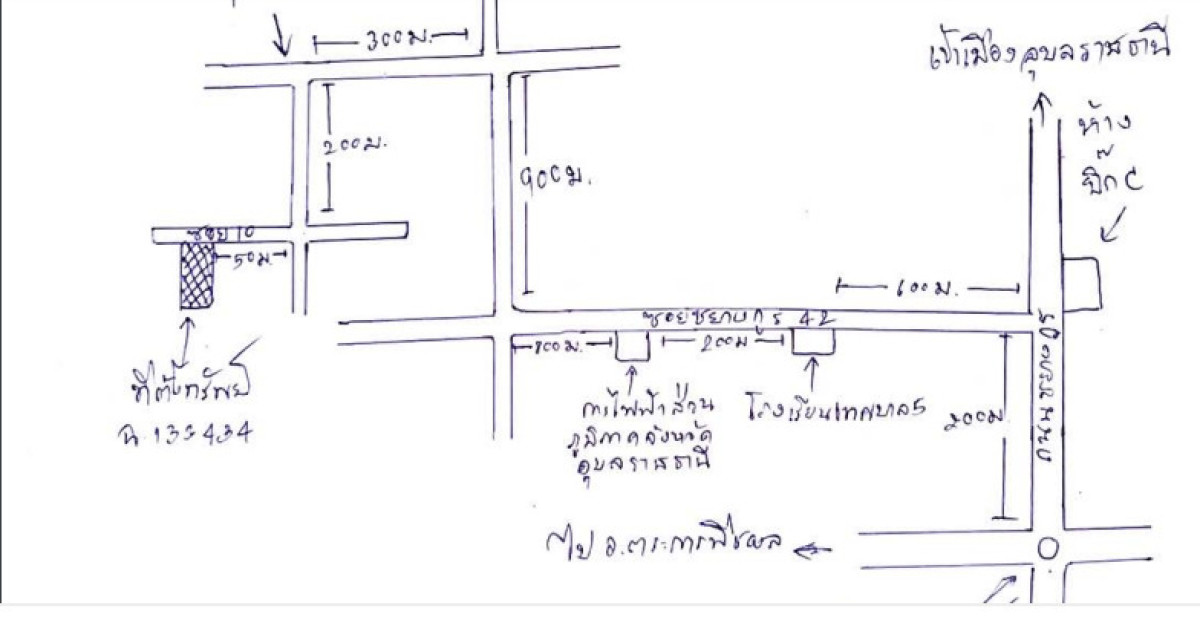 300 ม.
เข้าเมืองอุบลราชธานี
ห้าง
บิ๊ก C
200ม.
900ม.
ซอย 10
50ม.
600 ม.
ซอยชยางกูร 42
100ม.
200ม
ที่ตั้งทรัพย์
ฉ.133434
การไฟฟ้าส่วน
ภูมิภาคจังหวัด
อุบลราชธานี
โรงเรียนเทศบาล5
200ม.
ถนนชยางกูร
ไป อ.ตระการพืชผล